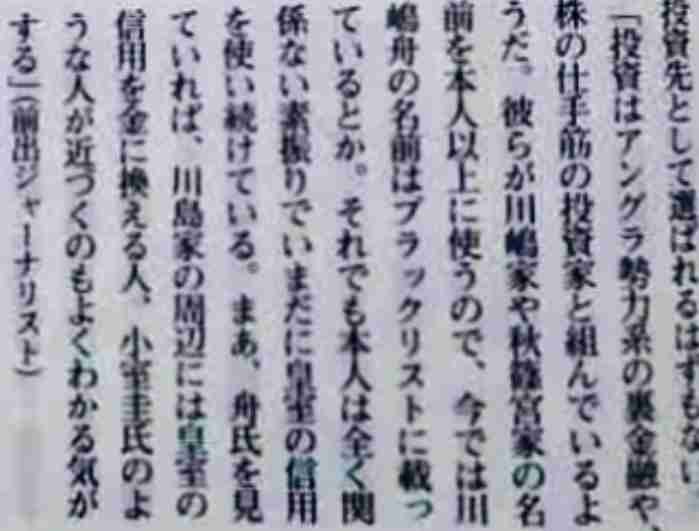 投資先として選ばれるはずもない。
「投資はアングラ勢力系の裏金融や
株の仕手筋の投資家と組んでいるよ
うだ。彼らが川嶋家や秋篠宮家の名
前を本人以上に使うので、今では川
嶋舟の名前はブラックリストに載っ
ているとか。それでも本人は全く関
係ない素振りでいまだに皇室の信用
を使い続けている。まあ、舟氏を見
ていれば、川島家の周辺には皇室の
信用を金に換える人、小室圭氏のよ
うな人が近づくのもよくわかる気が
する」(前出ジャーナリスト)